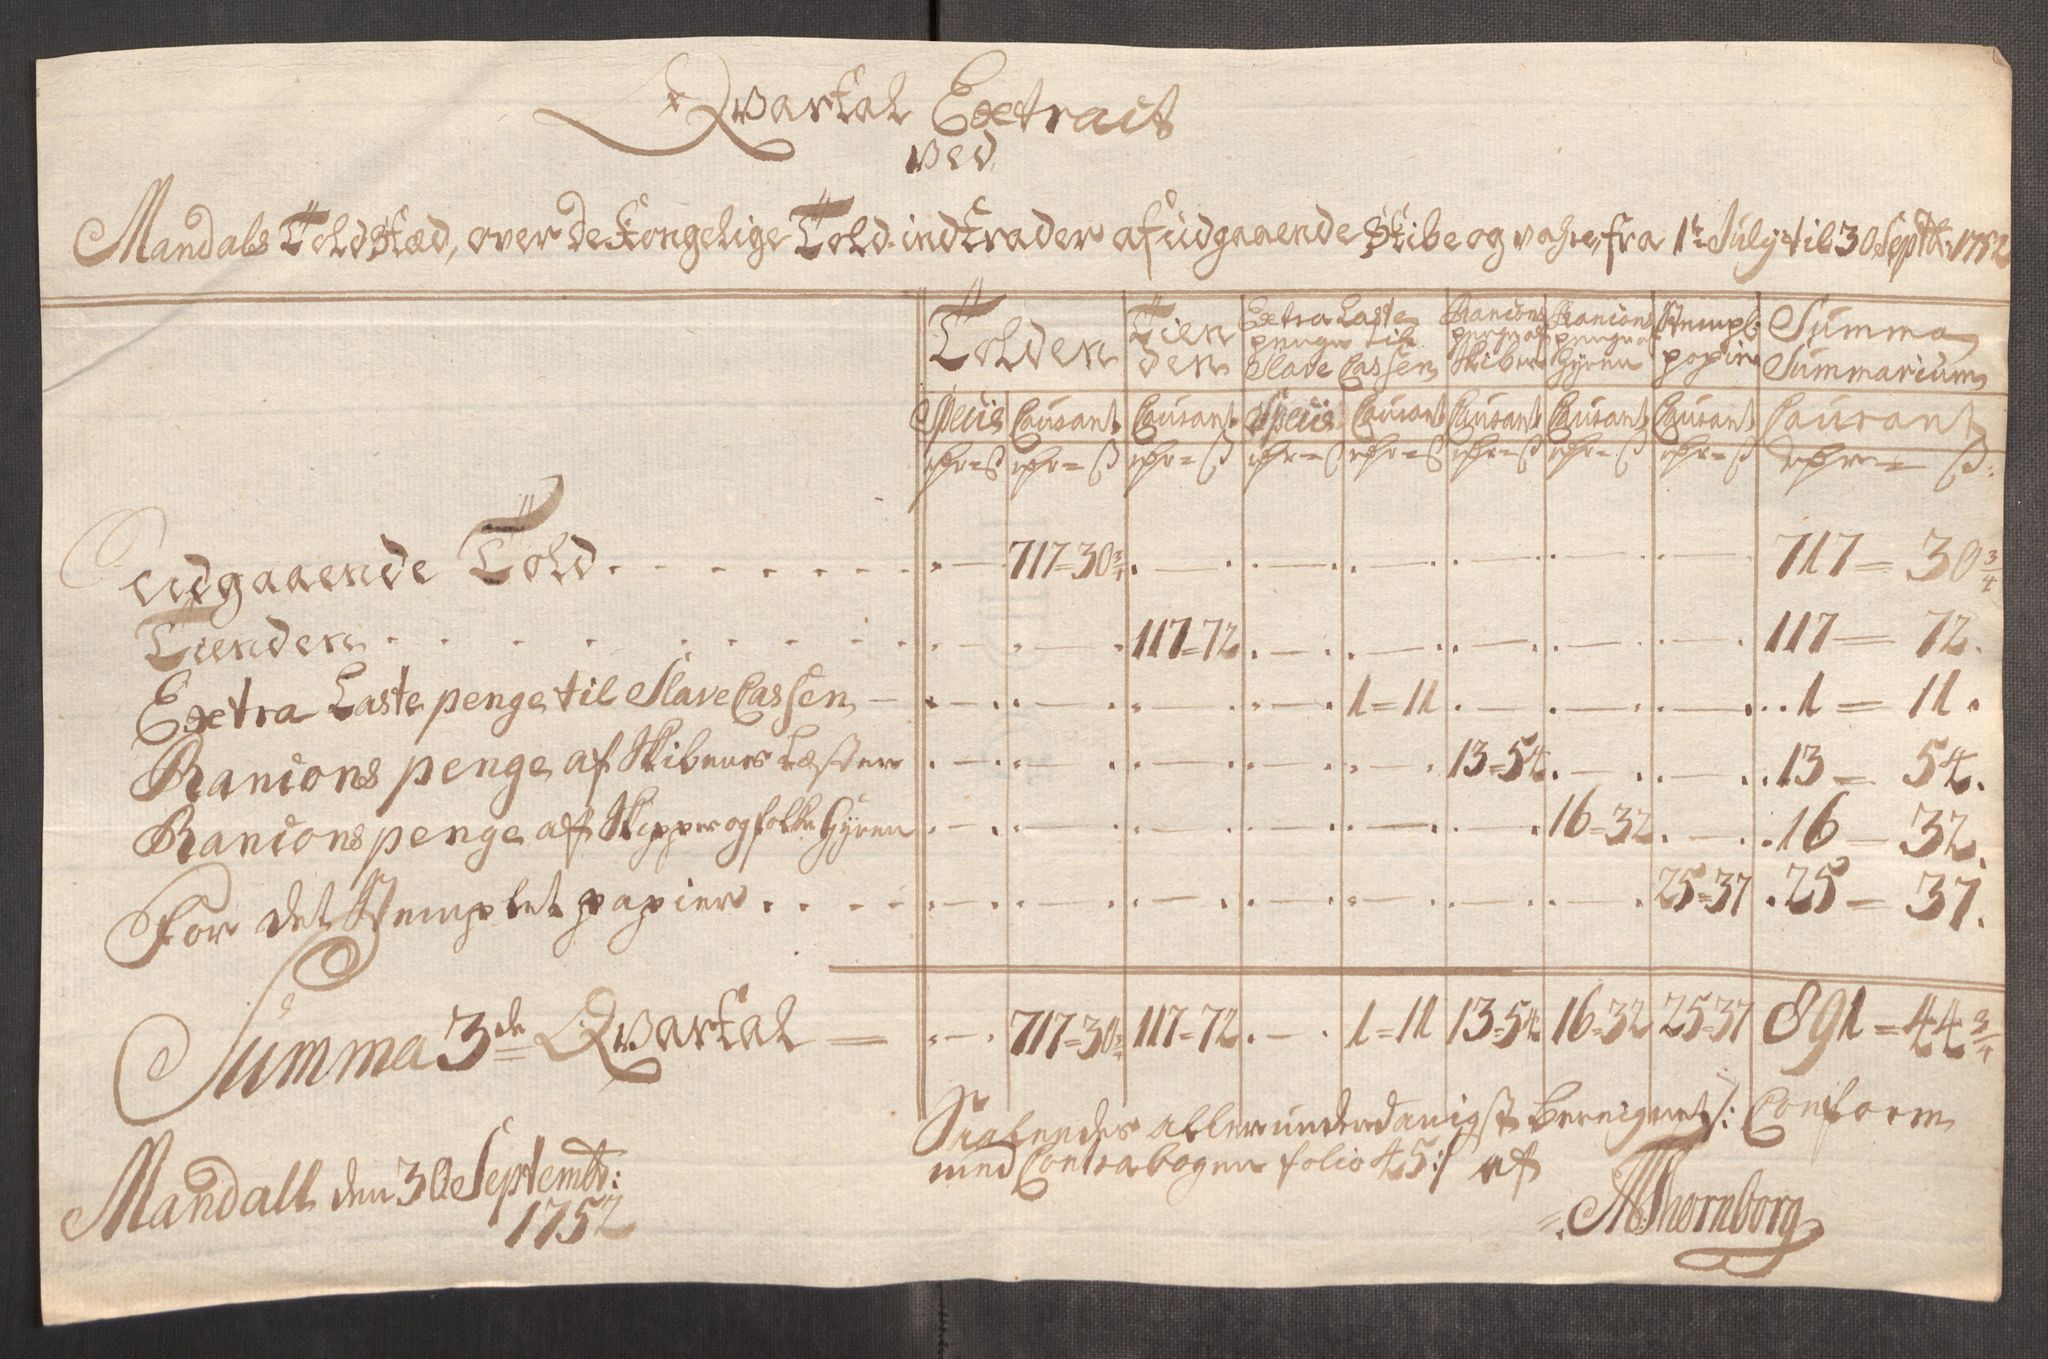 Qvartal Extract
ved
Mandals Toldsted, over de Kongelige Told indtrader af udgaaende Skibe og vahre, fra 1te July til 30 Septbr: 1752
Tolden | Tien den | Extra Laste penge til Slave Cassen | Rancions penge af Skibene | Rancions penge af Hyren | Stempl: papir | Summa Summarium
Specis | Courant | Courant | Specis | Courant | Courant | Courant | Courant | Courant
rdr = ß | rdr = ß | rdr = ß | rdr = ß | rdr = ß | rdr = ß | rdr = ß | rdr = ß | rdr = ß:
Udgaaende Told . . . . . . . . . — 717=30 3/4 . — . — . — . — . — . — 717 = 30 3/4
Tienden . . . . . . . . . — . — . 117=72 . — . — . — . — . — 117 = 72.
Extra Laste penge til Slave Cassen — . — . — . — . — 1=11 . — . — . — . 1 = 11.
Rancions penge af Skibenes Læster . — . — . — . — . — 13=54 . — . — . 13 = 54.
Rancions penge af Skipper og folke Hyren . — . — . — . — . — . — 16=32 . — . 16 — 32.
For det Stemplet papier . . . . — . — . — . — . — . — . — 25=37 . 25 — 37.
Summa 3de Qvartal = . — . 717=30 3/4 117=72 . — . 1=11 13=54 16=32 25=37 891=44 3/4
Saaledes allerunderdanigst beregnet /: Conform
med Contrabogen folio 45 :/ af
Mandall den 30 Septembr:
1752
Thornborg